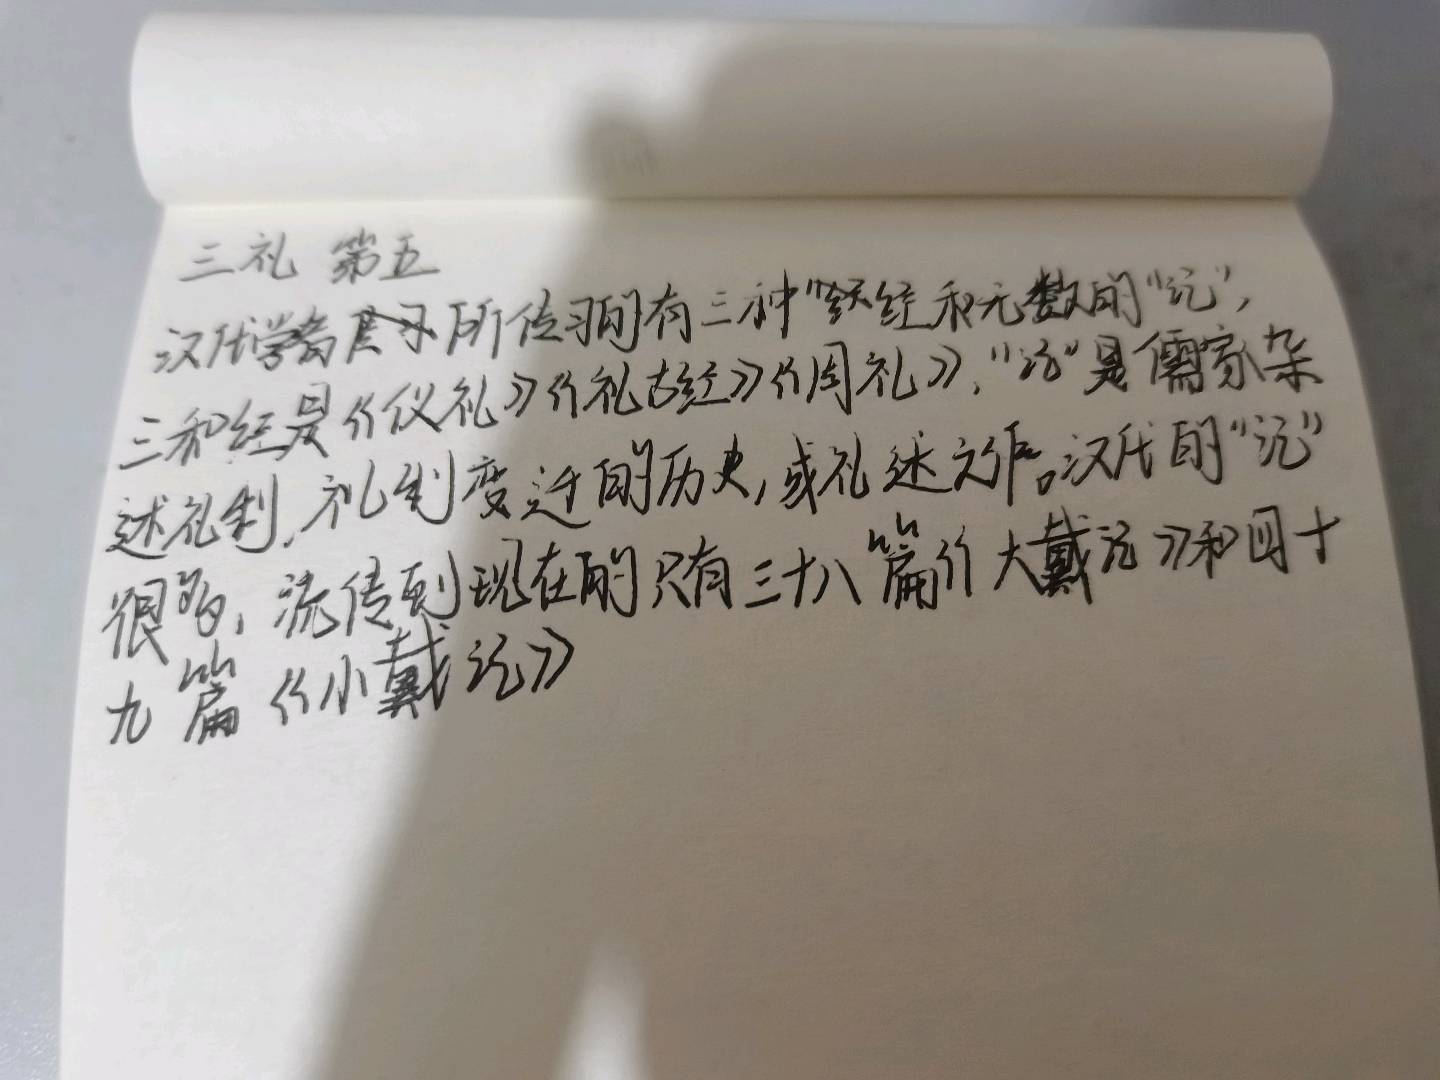 三礼 第五
汉代学者所传习的有三种"经和无数的"记",
三种经是《仪礼》《礼古经》《周礼》,"记"是儒家杂
述礼制、礼制变迁的历史,或礼述之作。汉代的"记"
很多,流传到现在的只有三十八篇《大戴记》和四十
九篇《小戴记》